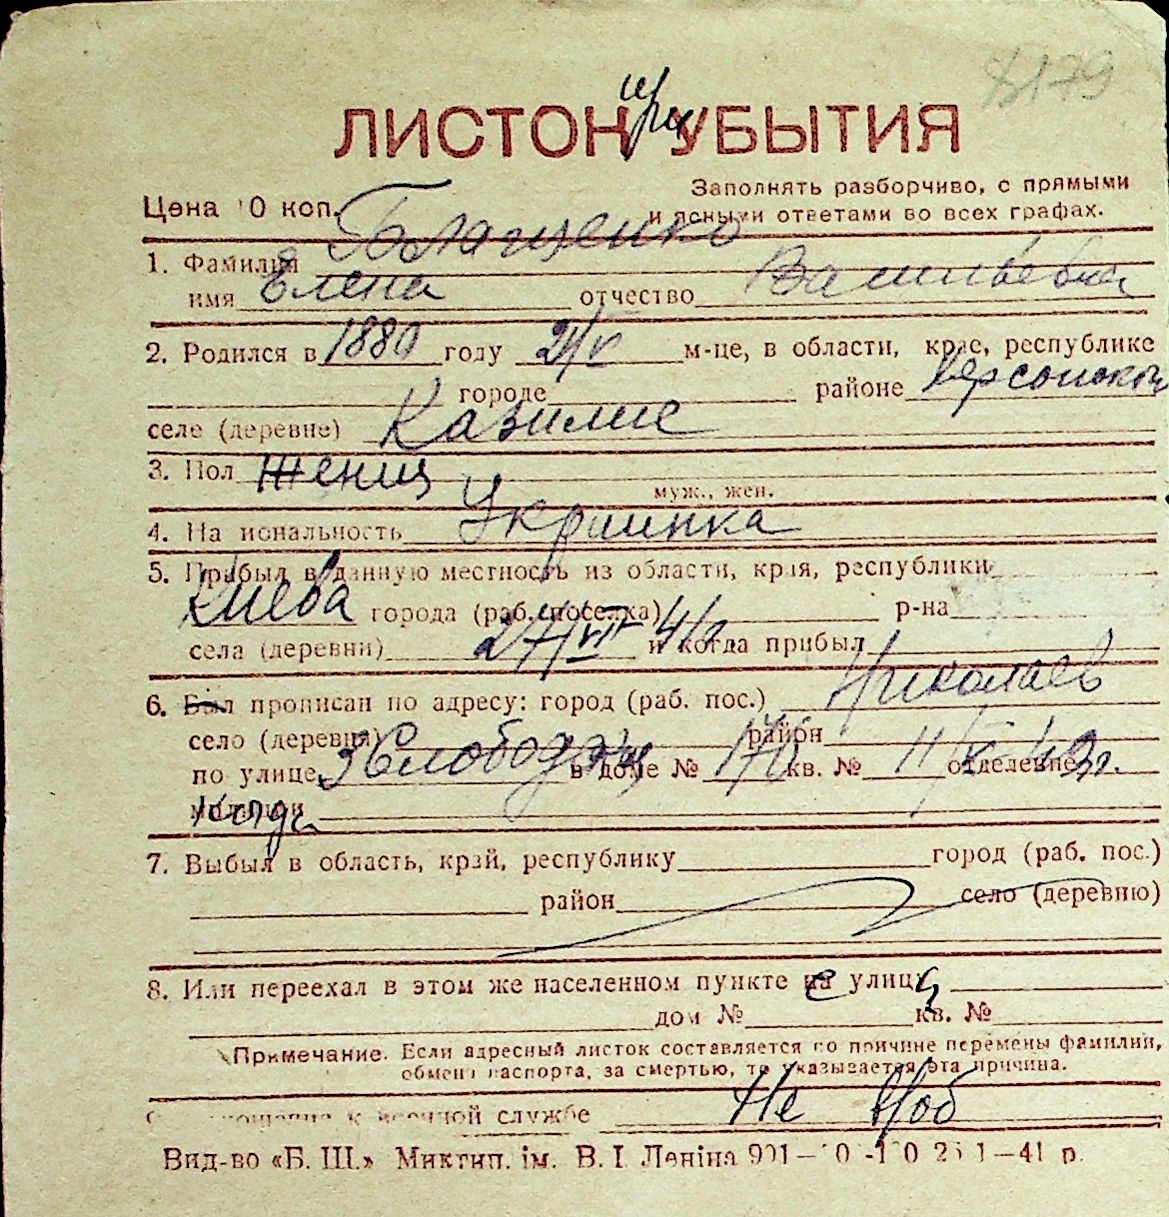 8179
при
ЛИСТОК УБЫТИЯ
Заполнять разборчиво, с прямыми
Цена 10 коп. и ясными ответами во всех графах.
1. Фамилия Благиенко
имя Елена отчество Васильевна
2. Родился в 1880 году 21/V м-це, в области, крае, республике
городе районе Херсонской
село (деревне) Казилие
3. Пол Женщ
муж., жен.
4. Национальность Украинка
5. Прибыл в данную местность из области, края, республики
Киева города (раб. поселка) р-на
села (деревни) 27/VII 41г и когда прибыл
6. Был прописан по адресу: город (раб. пос.) Николаев
село (деревня) район
по улице 3 Слободск в доме № 170 кв. № 11/X 42г. отделение
милиции
7. Выбыл в область, край, республику город (раб. пос.)
район село (деревню)
8. Или переехал в этом же населенном пункте на с улицу
дом № кв. №
Примечание. Если адресный листок составляется по причине перемены фамилии,
обмена паспорта, за смертью, то указывается эта причина.
к военной службе Не в/об
Вид-во «Б. Ш.» Миктип. ім. В. І. Леніна